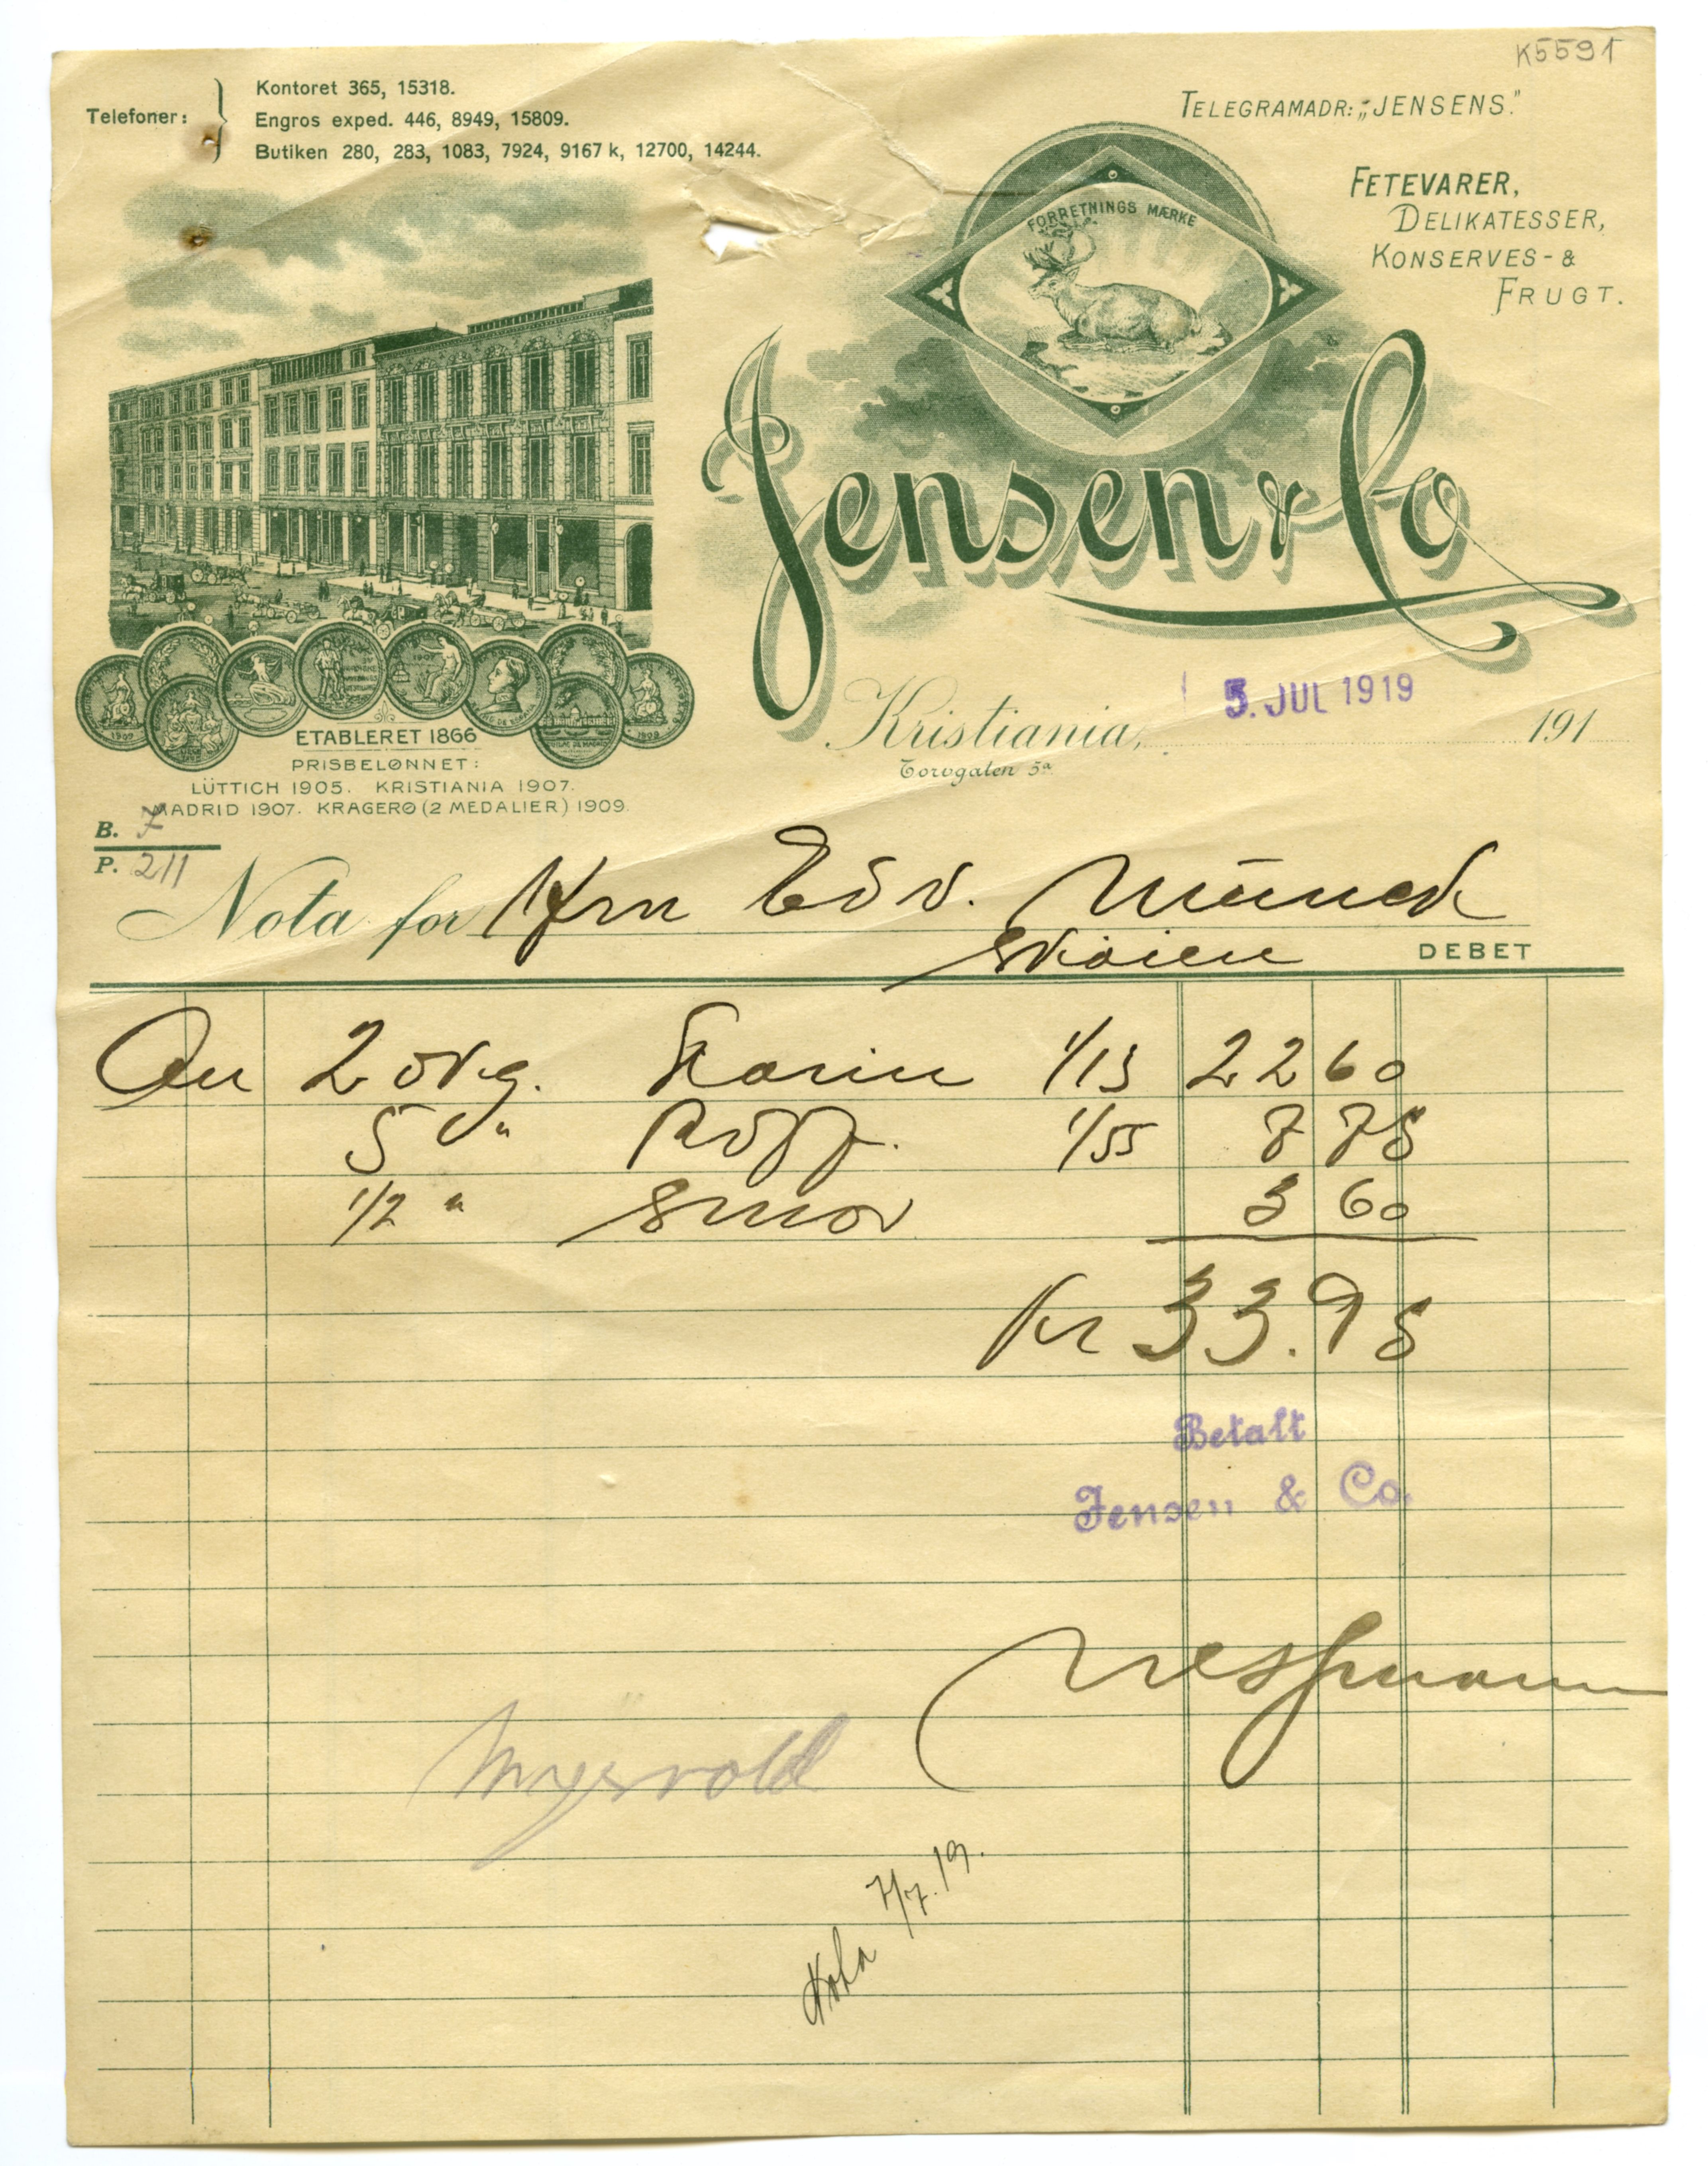 K5591
Telefoner:
Kontoret 365, 15318.
Engros exped. 446, 8949, 15809.
Butiken 280, 283, 1083, 7924, 9167 k, 12700, 14244.
TELEGRAMADR: „JENSENS."
FETEVARER,
DELIKATESSER,
KONSERVES- &
FRUGT.
FORRETNINGS MÆRKE
Jensen & Co
Kristiania, 5. JUL 1919 191
Torvgaten 5a
1907
1909
ETABLERET 1866
PRISBELØNNET:
LÜTTICH 1905. KRISTIANIA 1907.
MADRID 1907. KRAGERØ (2 MEDALIER) 1909.
B. 7
P. 211
Nota for Hrn Edv. Munck
Skøien DEBET
An 2 22 60
5 " 1/55 7 75
1/2 " Smør 3 60
Kr 33.95
Betalt
Jensen & Co.
Myrvold
7/7.19.